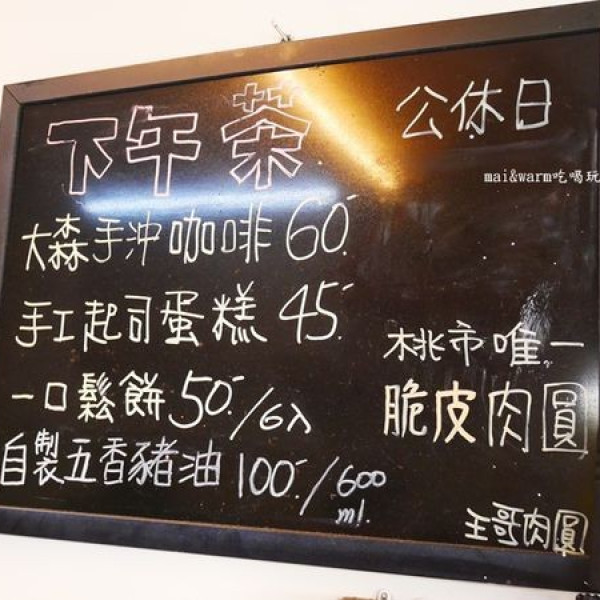 下午茶
大森手沖咖啡60.-
手工起司蛋糕45.-
一口鬆餅50.-/6入
自製五香豬油100.-/600ml.
公休日
mai&warm吃喝玩
桃市唯一
脆皮肉圓
王哥肉圓